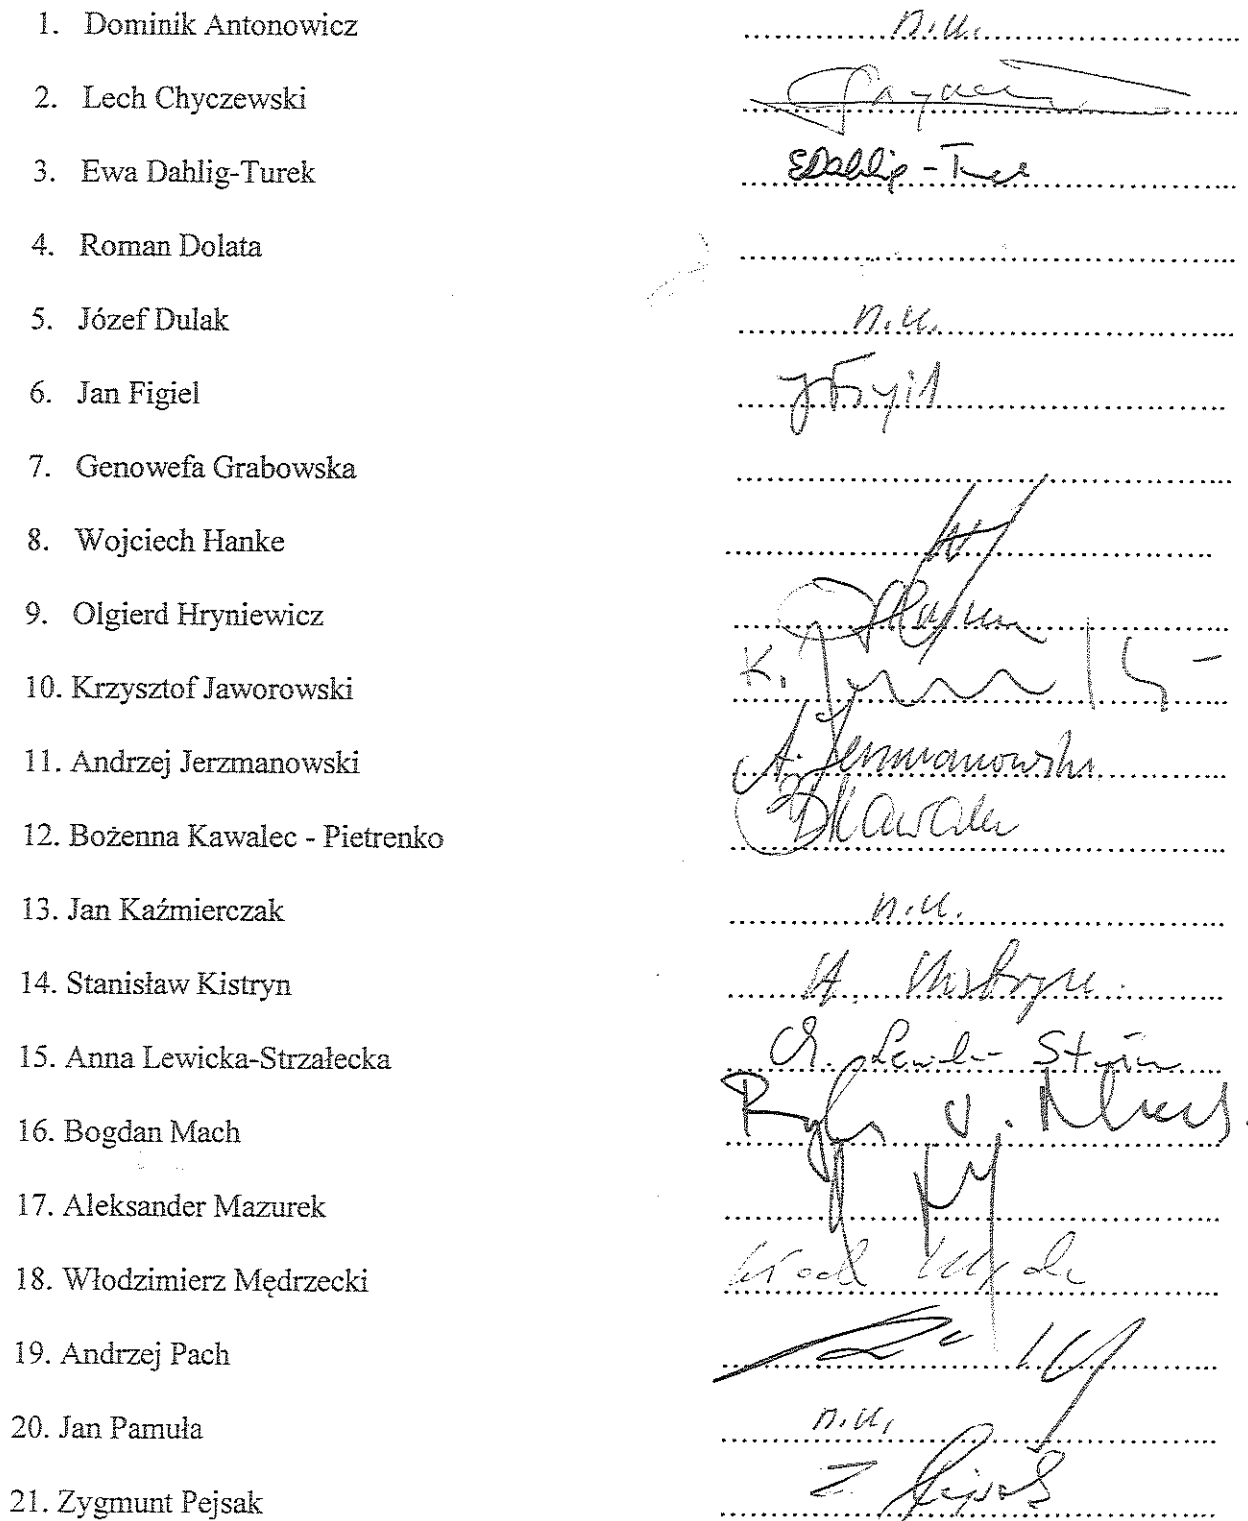 1. Dominik Antonowicz n.u.
2. Lech Chyczewski
3. Ewa Dahlig-Turek EDahlig-Turek
4. Roman Dolata
5. Józef Dulak n.u.
6. Jan Figiel JFigiel
7. Genowefa Grabowska
8. Wojciech Hanke
9. Olgierd Hryniewicz
10. Krzysztof Jaworowski K.
11. Andrzej Jerzmanowski A. Jerzmanowski
12. Bożenna Kawalec - Pietrenko BKawalec
13. Jan Kaźmierczak n.u.
14. Stanisław Kistryn St. Kistryn
15. Anna Lewicka-Strzałecka
16. Bogdan Mach
17. Aleksander Mazurek
18. Włodzimierz Mędrzecki
19. Andrzej Pach
20. Jan Pamuła n.u.
21. Zygmunt Pejsak Z. Pejsak